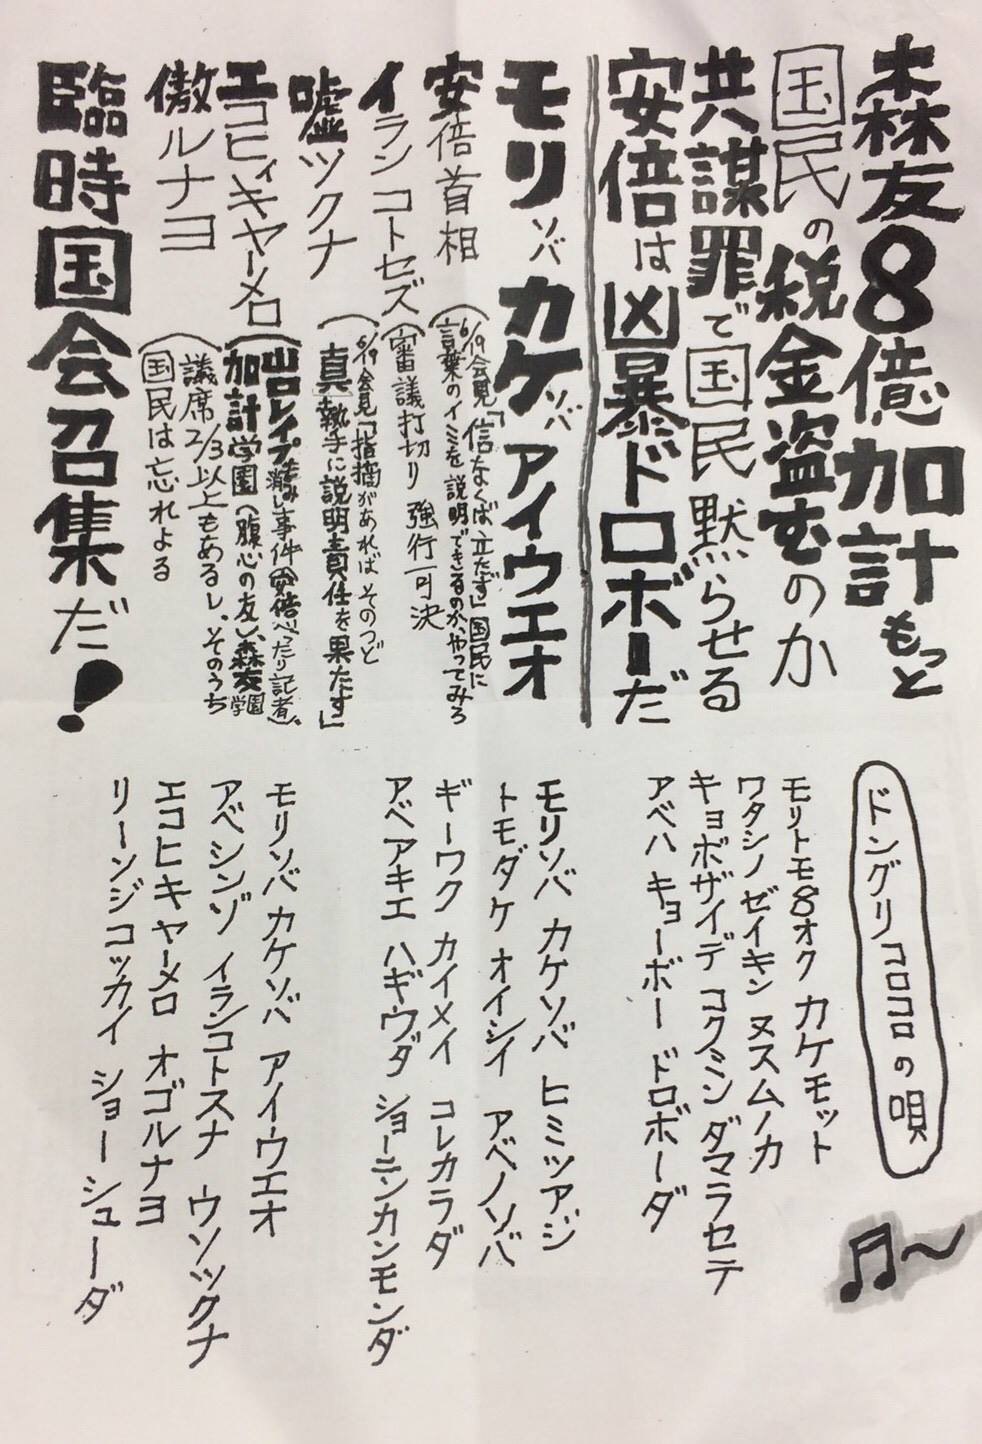 森友8億加計もっと
国民の税金盗むのか
共謀罪で国民黙らせる
安倍は凶暴ドロボーだ
モリソバカケソバアイウエオ
安倍首相
(6/19会見「信なくば立たず」国民に
言葉のイミを説明できるのか、やってみろ
イランコトセズ
(審議打切り強行可決
嘘ツクナ
(6/19会見「指摘があればそのつど
真摯に説明責任を果たす」
エコヒイキヤーメロ
(山口レイプもみ消し事件(安倍べったり記者)、
加計学園(腹心の友)、森友学園
傲ルナヨ
(議席2/3以上もあるし、そのうち
国民は忘れよる
臨時国会召集だ!
ドングリコロコロの唄
モリトモ8オク カケモット
ワタシノゼイキン ヌスムノカ
キョボザイデ コクミン ダマラセテ
アベハ キョーボー ドロボーダ
モリソバ カケソバ ヒミツアジ
トモダケ オイシイ アベノソバ
ギーワク カイメイ コレカラダ
アベアキエ ハギウダ ショーニンカンモンダ
モリソバ カケソバ アイウエオ
アベシンゾ イランコトスナ ウソツクナ
エコヒキヤーメロ オゴルナヨ
リーンジコッカイ ショーシューダ